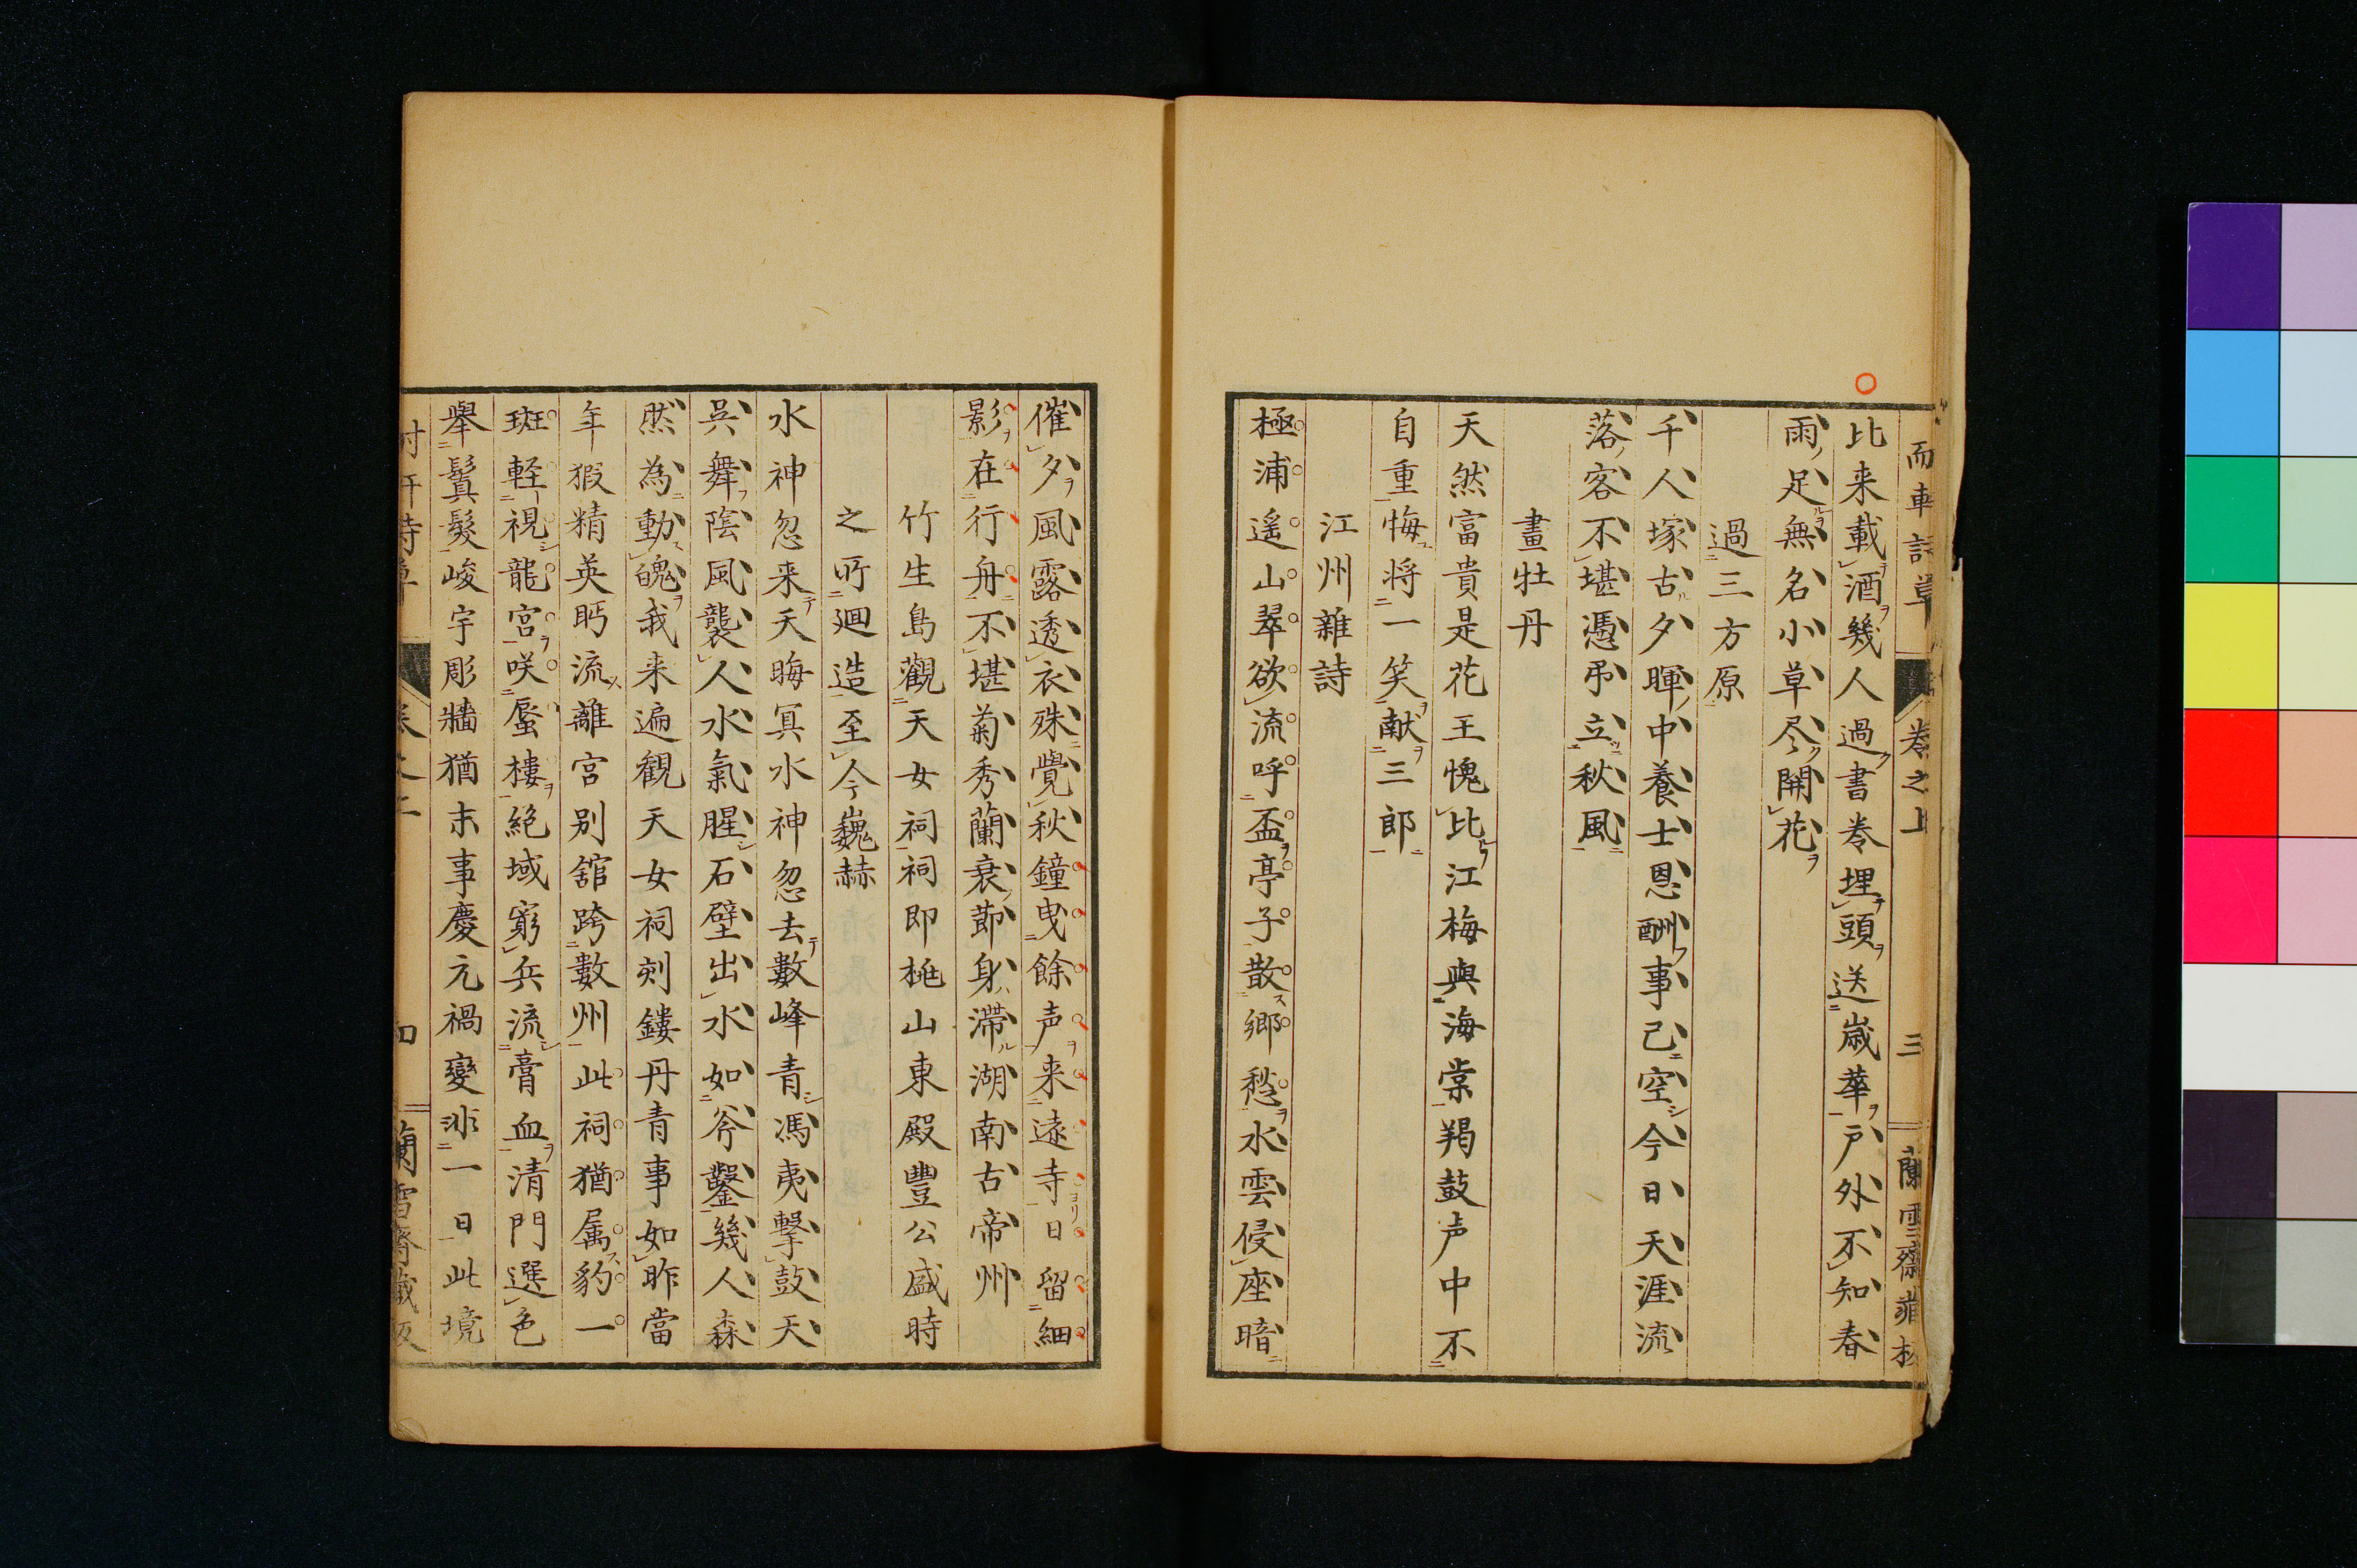 比来載酒幾人過書巻埋頭送歳華戸外不知春
雨足無名小草尽開花
過三方原
千人塚古夕暉中養士恩酬事已空今日天涯流
落客不堪憑弔立秋風
畫牡丹
天然富貴是花王愧比江梅與海棠羯鼓声中不
自重悔将一笑献三郎
江州雜詩
極浦遥山翠欲流呼盃亭子散郷愁水雲侵座暗
催夕風露透衣殊覺秋鐘曳餘声来遠寺日留細
影在行舟不堪菊秀蘭衰節身滞湖南古帝州
竹生島觀天女祠祠即桃山東殿豐公盛時
之所廻造至今巍赫
水神忽来天晦冥水神忽去數峰青馮夷撃鼓天
呉舞陰風襲人水氣腥石壁出水如斧鑿幾人森
然為動魄我来遍観天女祠剡鏤丹青事如昨當
年猳精英眄流離宮別舘跨數州此祠猶属豹一
斑軽視龍宮咲蜃樓絶域窮兵流膏血清門選色
舉鬒髮峻宇彫牆猶末事慶元禍變非一日此境